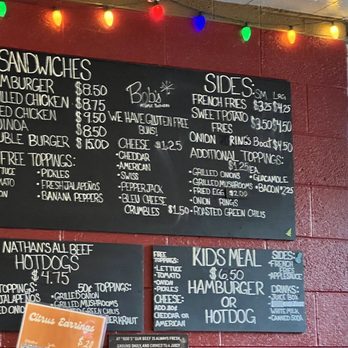 SANDWICHES
AMBURGER $8.50
ILLED CHICKEN $8.75
IED CHICKEN $9.50
INOA $8.50
UBLE BURGER $15.00
FREE TOPPINGS:
TUCE
ATO
ION
• PICKLES
• FRESH JALAPEÑOS
• BANANA PEPPERS
Bobs
WE HAVE GLUTEN FREE
BUNS!
CHEESE $1.25
• CHEDDAR
• AMERICAN
• SWISS
• PEPPERJACK
• BLEU CHEESE
CRUMBLES $1.50
SIDES: SM LRG
FRENCH FRIES $3.25 $4.25
SWEET POTATO $3.50 $4.50
FRIES
ONION RINGS Boat $4.50
ADDITIONAL TOPPINGS:
$1.25 EA.
• GRILLED ONIONS
• GRILLED MUSHROOMS
• FRIED EGG $2.00
• ONION RINGS
• ROASTED GREEN CHILIS
• GUACAMOLE
• BACON $2.25
NATHAN'S ALL BEEF
HOTDOGS
$4.75
TOPPINGS:
JALAPENOS
IONS
50¢ TOPPINGS:
• GRILLED ONION
• GRILLED MUSHROOMS
GREEN CHILIS
ERKRAUT
FREE
TOPPINGS:
• LETTUCE
• TOMATO
• ONION
• PICKLES
CHEESE:
ADD .50¢
CHEDDAR OR
AMERICAN
KIDS MEAL
$6.50
HAMBURGER
OR
HOTDOG
SIDES:
• FRENCH
FRIES
• APPLESAUCE
DRINKS:
• JUICE BOX
• WHITE MILK
• CANNED SODA
Citrus Earrings
$28
AT "BOB'S" OUR BEEF IS ALWAYS FRESH,